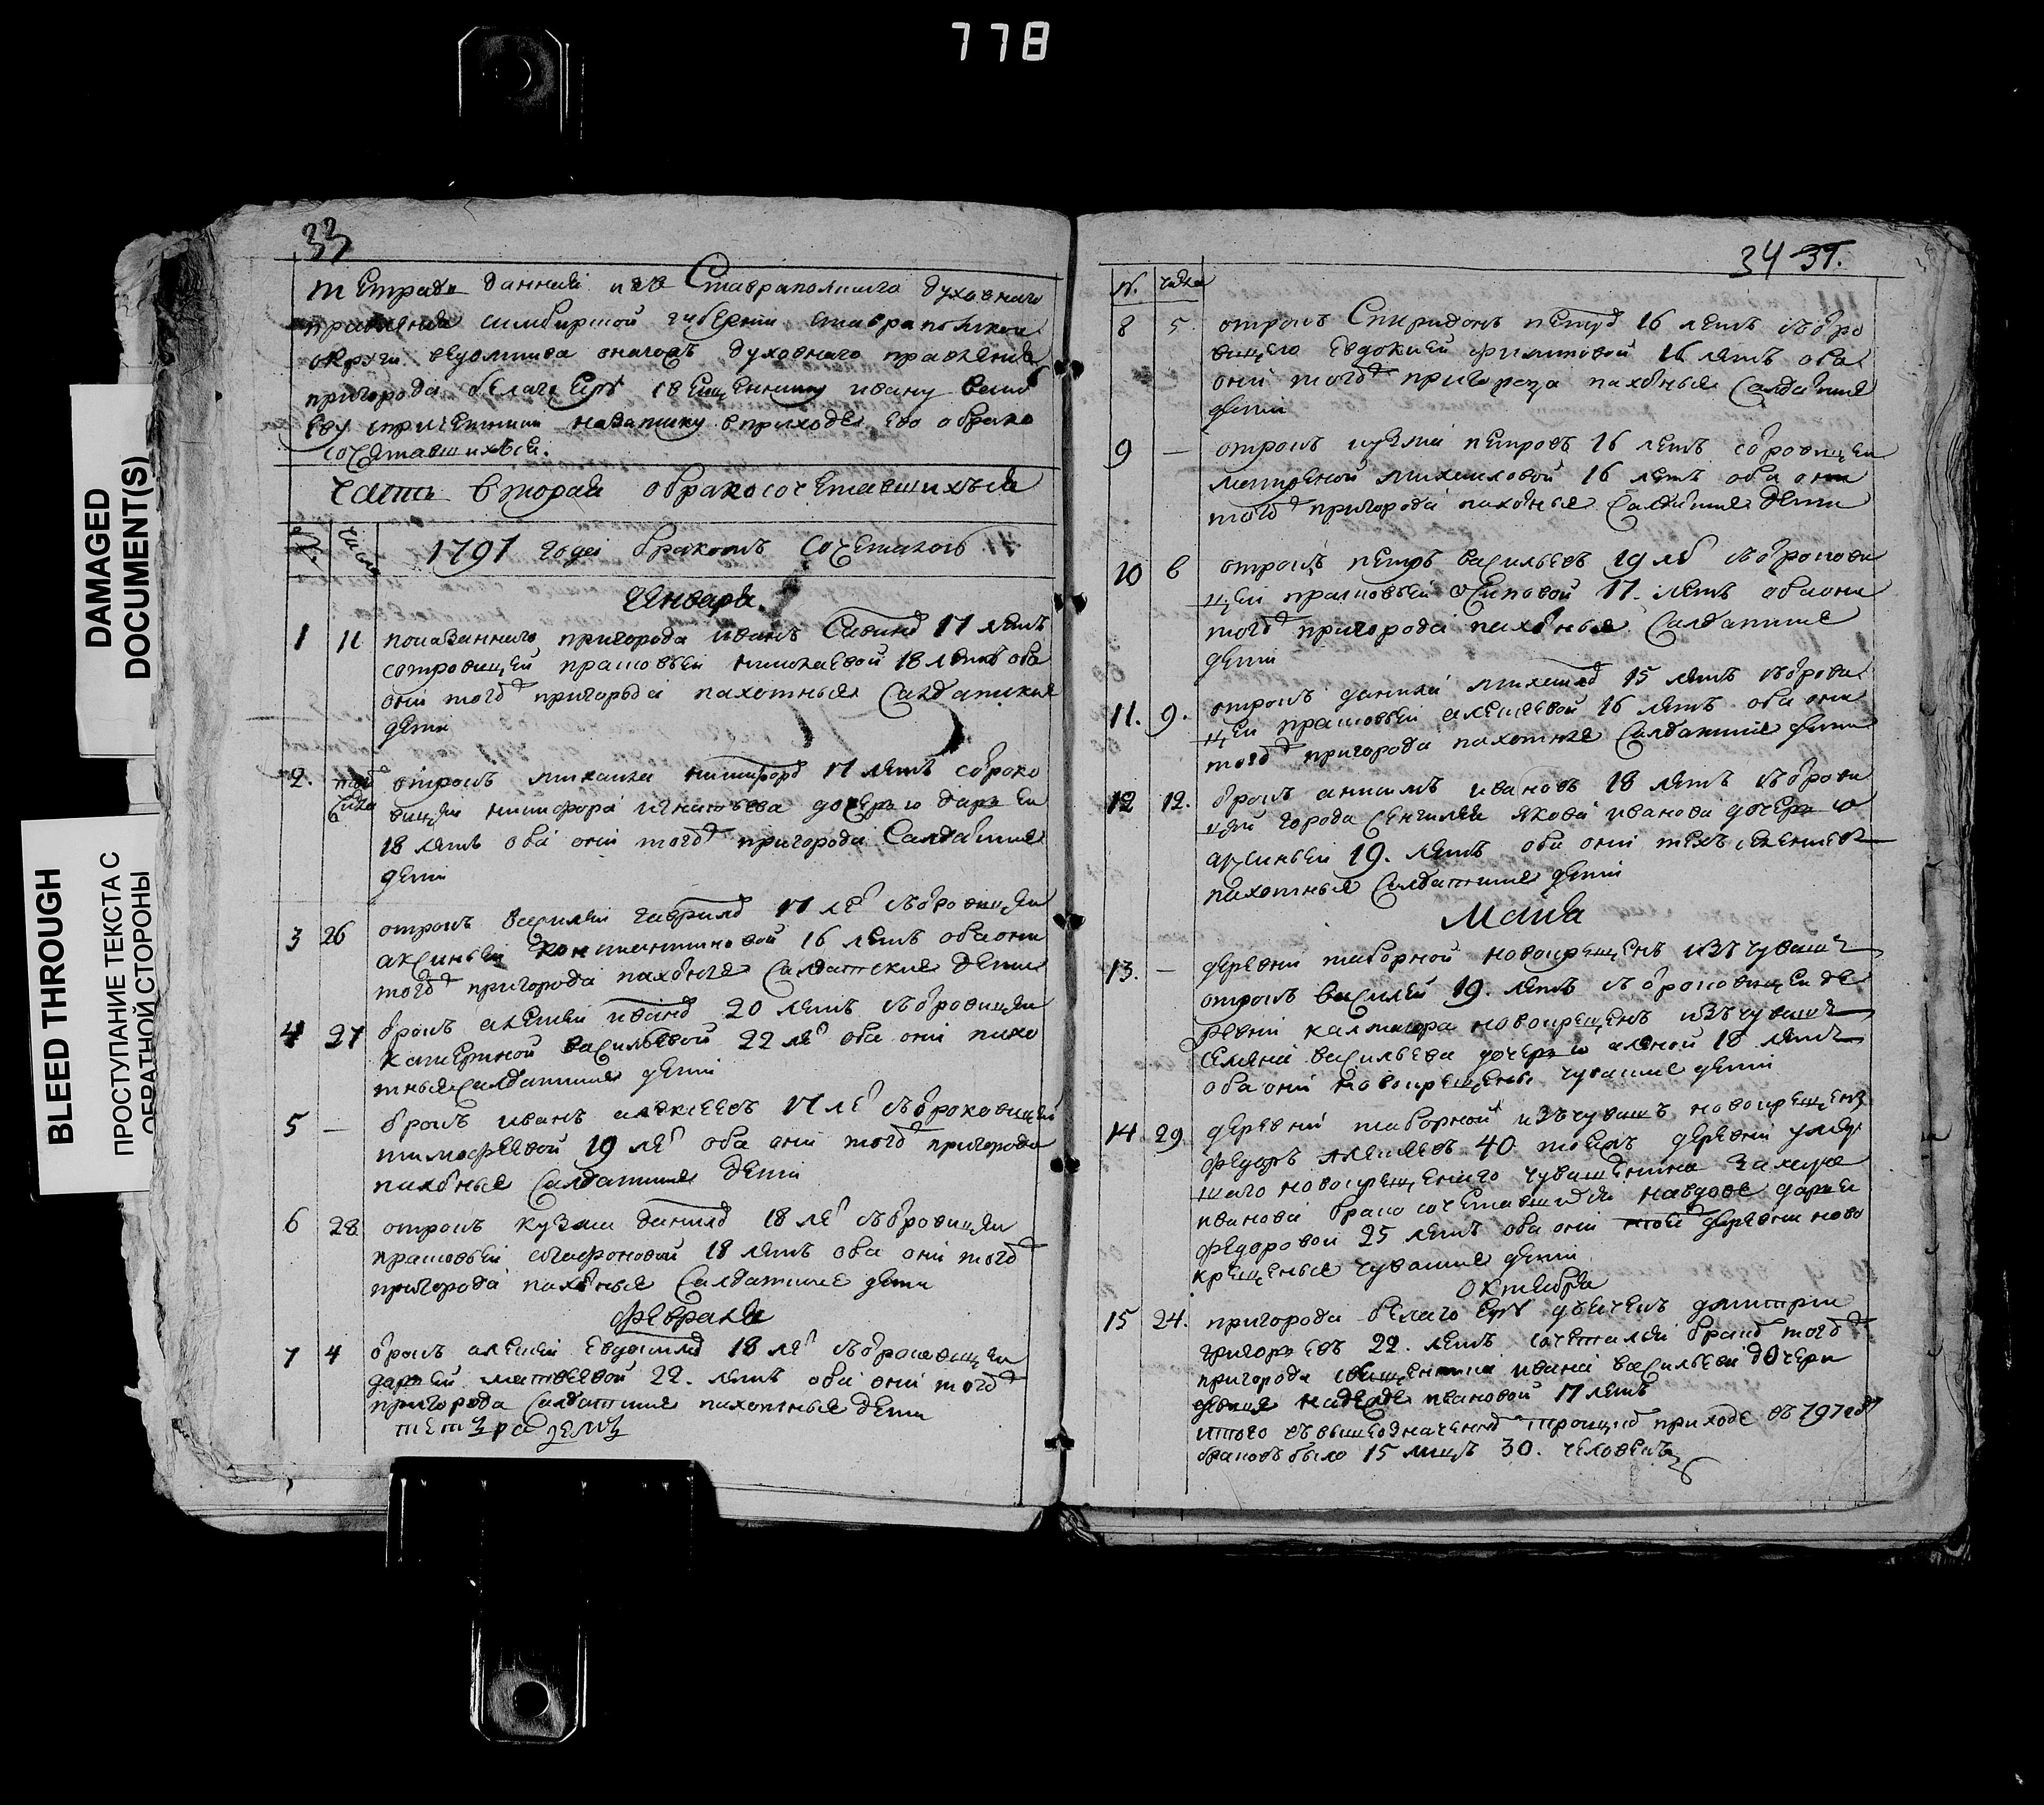 778
DAMAGED
DOCUMENT(S)
BLEED THROUGH
ПРОСТУПАНИЕ ТЕКСТА С
ОБРАТНОЙ СТОРОНЫ
33
тетрать данная изъ Ставрапольскаго духовнаго
правления симбирской губернии ставрапольской
округи ведомства онагожъ духовнаго правления
пригорода белаго Еру священнику ивану васи
еву спричетники назаписку вприходе его обрако
сочетавшихъся.
часть вторая обракосочетавшихъся
№ число
1797 года бракомъ сочеталось
Генваря
1 11 показаннаго пригорода иванъ Савинъ 17 летъ
сотроковицей прасковьей николаевой 18 летъ оба
они того пригорода пахотныя Салдатския
дети
2. того числа отрокъ никита никифоро 17 летъ соброко
вицей никифора игнатьева дочерью дарьей
18 летъ оба они того пригорода Салдатские
дети
3 26 отрокъ василей гаврило 17 ле съоброковицей
аксиньей константиновой 16 летъ оба они
того пригорода пахотные Салдатские дети
4 27 брокъ алексей ивано 20 летъ съоброковицей
катериной васильевой 22 ле оба они пахо
тныя салдатские дети
5 — брокъ иванъ алексеевъ 17 ле съоброковицей
тимофеевой 19 ле оба они того пригорода
пахотные Салдатские дети
6 28 отрокъ кузма данило 18 ле съоброковицей
прасковьей агафоновой 18 летъ оба они того
пригорода пахотные Салдатские дети
февраля
7 4 брокъ алексей евдокимо 18 ле съоброковицей
дарьей матвеевой 22. летъ оба они того
пригорода Салдатские пахотные дети
34 37.
№. числа
8 5 отрокъ Спиридонъ петро 16 летъ съобро
вицею евдокией филиповой 16 летъ оба
они того пригорода пахотные Салдатские
дети
9 — отрокъ кузма петровъ 16 летъ собровицей
матреной михаиловой 16 летъ оба они
того пригорода пахотные Салдатские дети
10 6 отрокъ петръ васильевъ 19 ле съоброкови
цей прасковьей осиповой 17. летъ оба они
того пригорода пахотные Салдатские
дети
11. 9. отрокъ данила михаило 15 летъ съоброви
цей прасковьей алексеевой 16 летъ оба они
того пригорода пахотные Салдатские дети
12 12. брокъ анисимъ ивановъ 18 летъ съоброви
цей города Сенгилея якова иванова дочерью
аксиньей 19. летъ оба они техъ селениевъ
пахотные Салдатские дети
Маия
13. — деревни таборной новокрещенъ изъ чувашъ
отрокъ василей 19. летъ съоброковицей де
ревни калмаюра новокрещенъ изъ чувашъ
Семена васильева дочерью аленой 18 летъ
оба они новокрещены чуваские дети
14 29 деревни таборной изъ чувашъ новокрещенъ
федоръ алексеевъ 40 тоежъ деревни умер
шаго новокрещенаго чувашенина захара
иванова брако сочетавшися навдове дарьи
федоровой 25 летъ оба они тоей деревни ново
крещеные чуваские дети
октября
15 24. пригорода белаго Еру дьячекъ дмитрий
григорьевъ 22. летъ сочетался брако того
пригорода священника ивана васильева дочери
девке надежде ивановой 17 летъ
итого въвышеозначенно троицко приходе въ 797 году
браковъ было 15 лицъ 30. человекъ